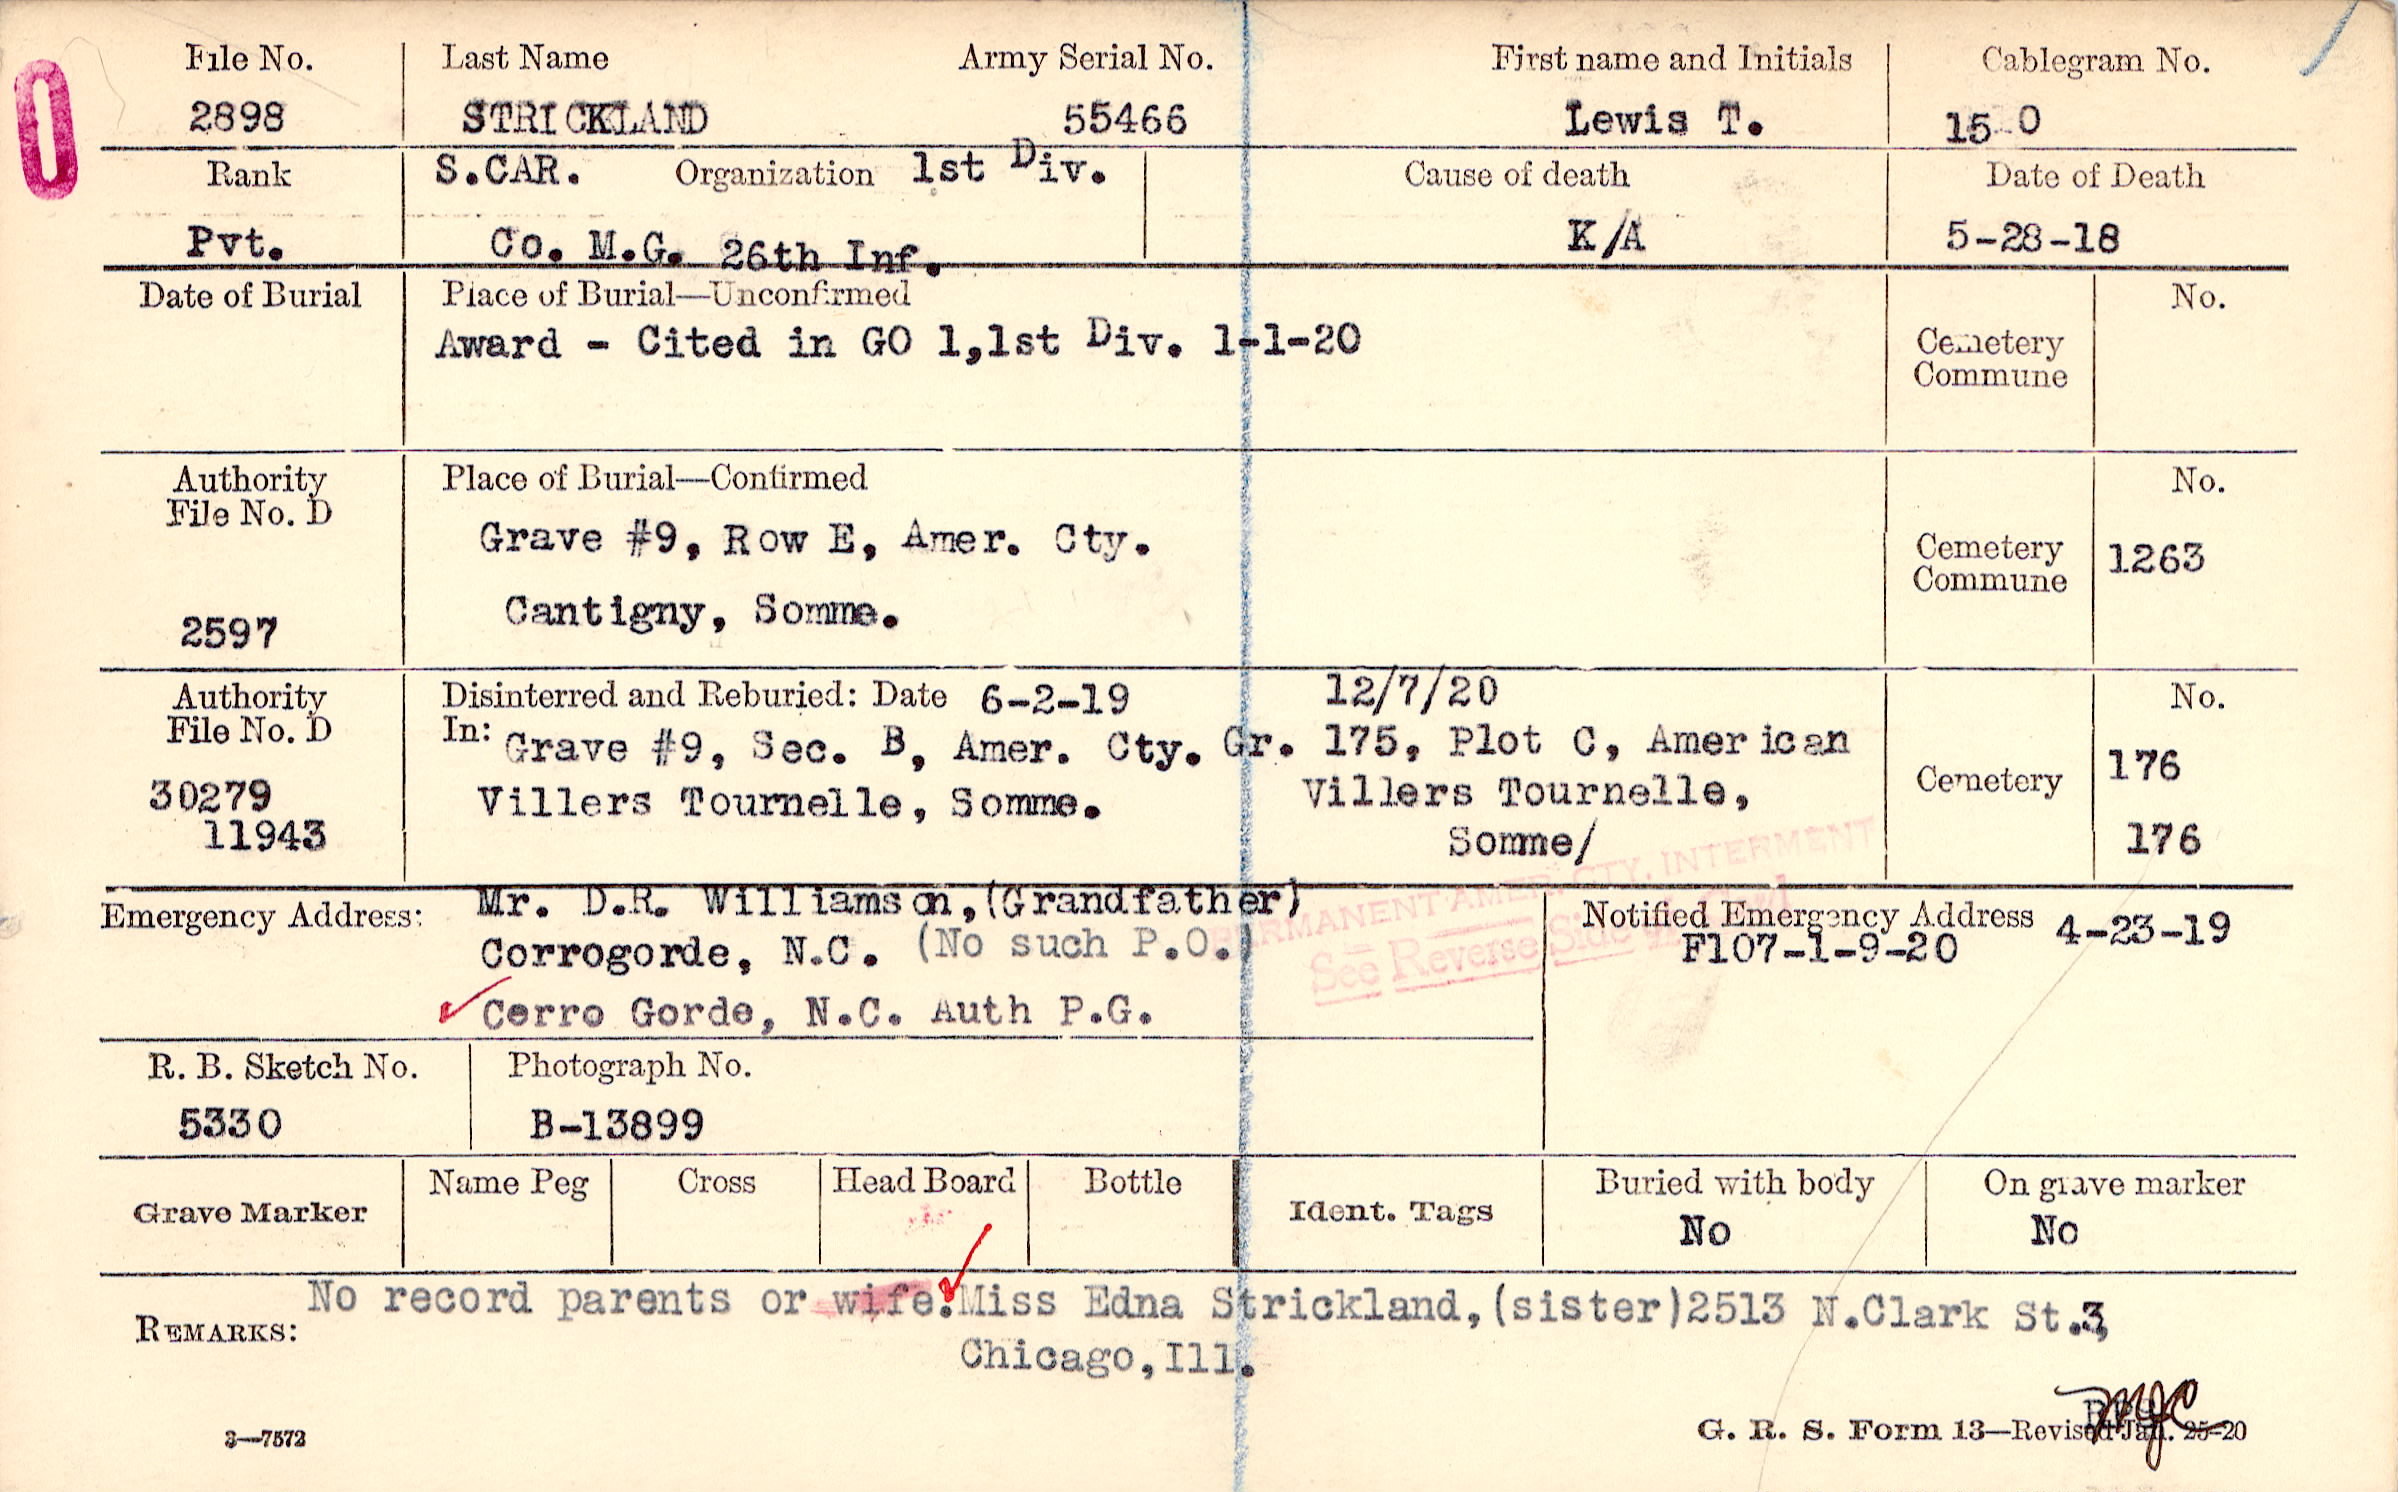 File No. Last Name Army Serial No. First name and Initials Cablegram No.
2898 STRICKLAND 55466 Lewis T. 15 0
Rank S.CAR. Organization 1st Div. Cause of death Date of Death
Pvt. Co. M.G. 26th Inf. K/A 5-28-18
Date of Burial Place of Burial—Unconfirmed No.
Award - Cited in GO 1,1st Div. 1-1-20 Cemetery
Commune
Authority Place of Burial—Confirmed No.
File No. D
Grave #9, Row E, Amer. Cty. Cemetery 1263
Commune
Cantigny, Somme.
2597
Authority Disinterred and Reburied: Date 6-2-19 12/7/20 No.
File No. D In: Grave #9, Sec. B, Amer. Cty. Gr. 175, Plot C, American
30279 Villers Tournelle, Somme. Villers Tournelle, Cemetery 176
11943 Somme/ 176
PERMANENT AMER. CTY. INTERMENT
See Reverse Side of Card
Emergency Address: Mr. D.R. Williamson,(Grandfather) Notified Emergency Address 4-23-19
Corrogorde, N.C. (No such P.O.) F107-1-9-20
Cerro Gorde, N.C. Auth P.G.
R. B. Sketch No. Photograph No.
5330 B-13899
Grave Marker Name Peg Cross Head Board Bottle Ident. Tags Buried with body On grave marker
No No
REMARKS: No record parents or wife. Miss Edna Strickland,(sister)2513 N.Clark St.3,
Chicago,Ill.
3—7572 G. R. S. Form 13—Revised Jan. 25-20